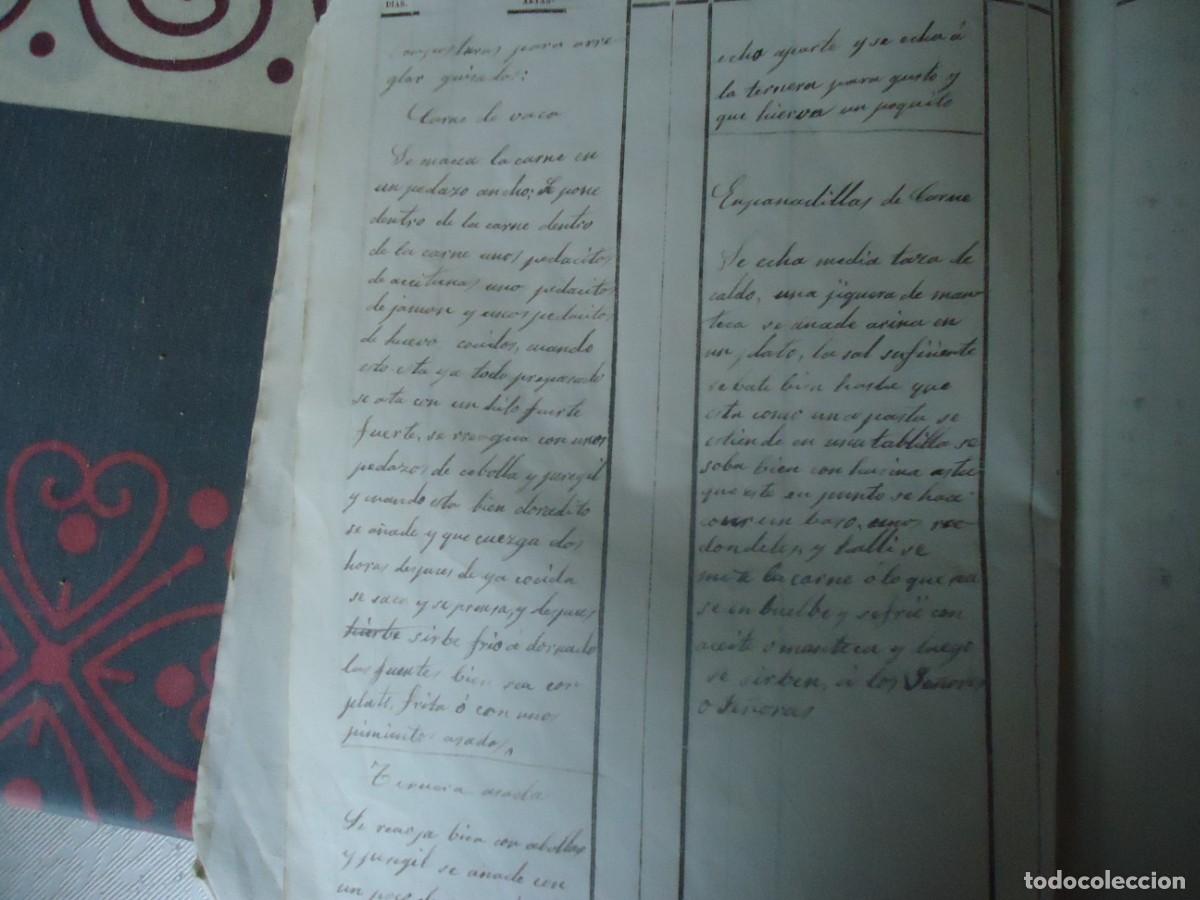 DIAS.
para arre
glar guisados:
Carne de vaca
Se macea la carne en
un pedazo ancho; Se pone
dentro de la carne dentro
de la carne unos pedacitos
de aceitunas uno pedacitos
de jamon y unos pedacitos
de huevo cocidos, cuando
esto esta ya todo preparado
se ata con un hilo fuerte
fuerte, se rreogua con unos
pedazos de cebolla y peregil
y cuando esta bien doradito
se añade y que cuezga dos
horas despues de ya cocida
se saca y se prensa, y despues
hierbe sirbe frio ó dornado
las fuentes bien sea con
patat. frita ó con unos
pimientos asados,
Ternera asada
Se reorja bien con cebollas
y peregil se añade con
un poco
echo aparte y se echa á
la ternera para gusto y
que hierva un poquito
Enpanadillas de Carne
Se echa media taza de
caldo, una jiguera de man
teca se añade arina en
un plato, la sal sufiiente
se bate bien hasta que
esta como una pasta se
estiende en una tablilla se
soba bien con harina asta
que este en punto se hace
con un baso, unos rre
dondeles, y talli se
mete la carne ó lo que sea
se en buelbe y se frie con
aceite ó manteca y luego
se sirben, á los Señores
o Señoras
todocoleccion